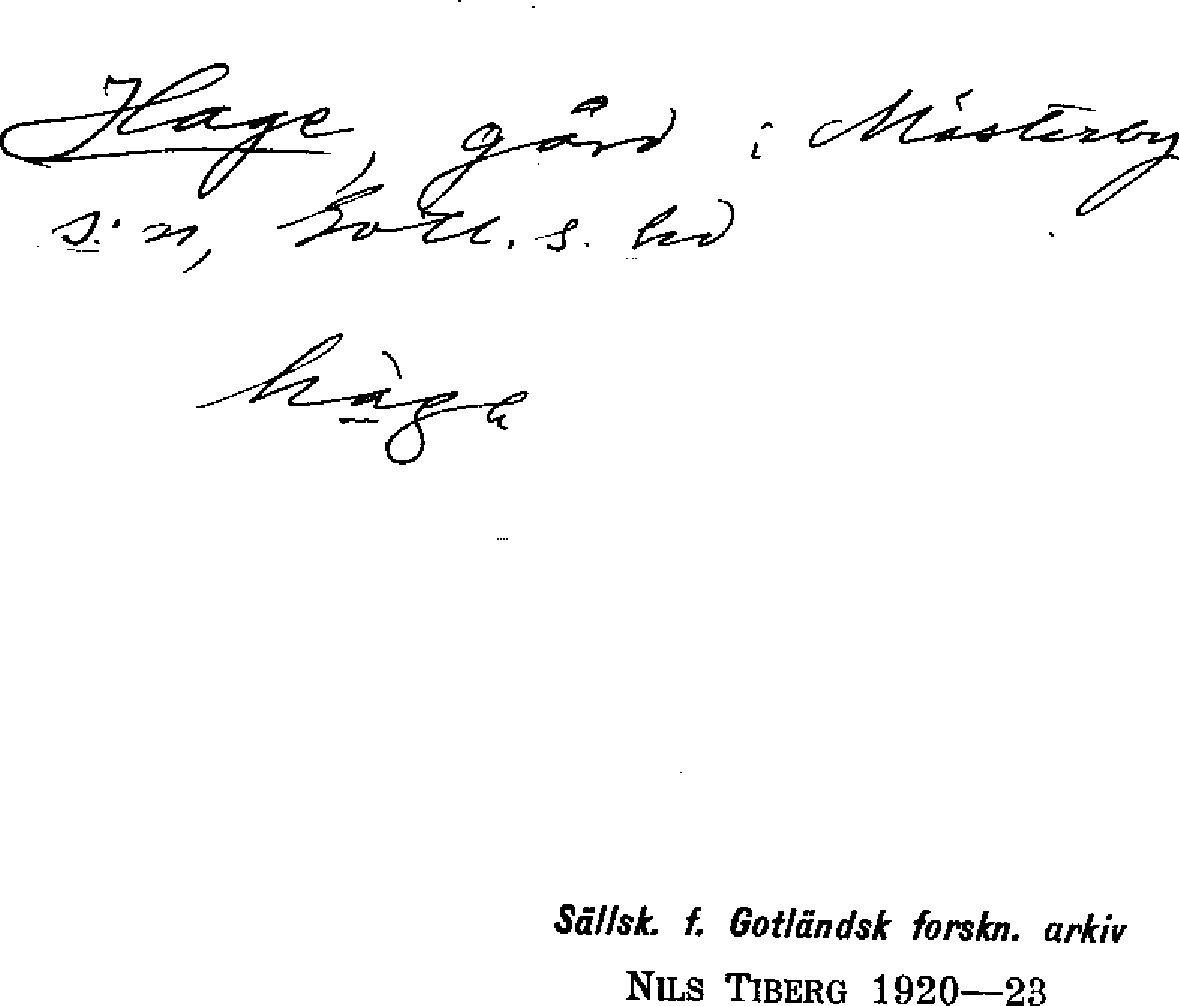 Hage, gård i Mästerby
s:n, Gotl. s. hd
hàge
Sällsk. f. Gotländsk forskn. arkiv
NILS TIBERG 1920—23